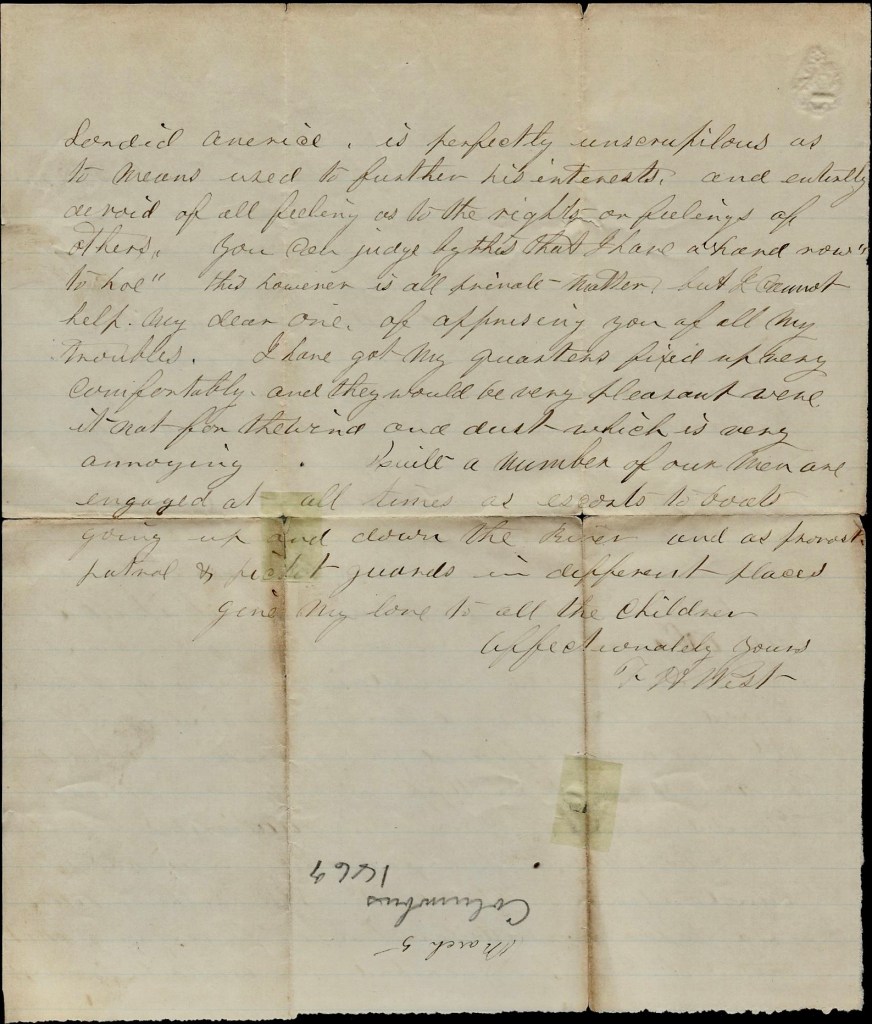 Sordid averice, is perfectly unscrupilous as
to means used to further his interests, and entirely
devoid of all feeling as to the rights or feelings of
others, You can judge by this that I have a "hard row
to hoe" this however is all private matter, but I cannot
help, my dear one, of apprising you of all my
troubles. I have got my quarters fixed up very
comfortably and they would be very pleasant were
it not for the wind and dust which is very
annoying. Quite a number of our men are
engaged at all times as escorts to boats
going up and down the River and as provost
patrol & picket guards in different places
give my love to all the children
Affectionately Yours
T H West
March 5
Columbus
1864